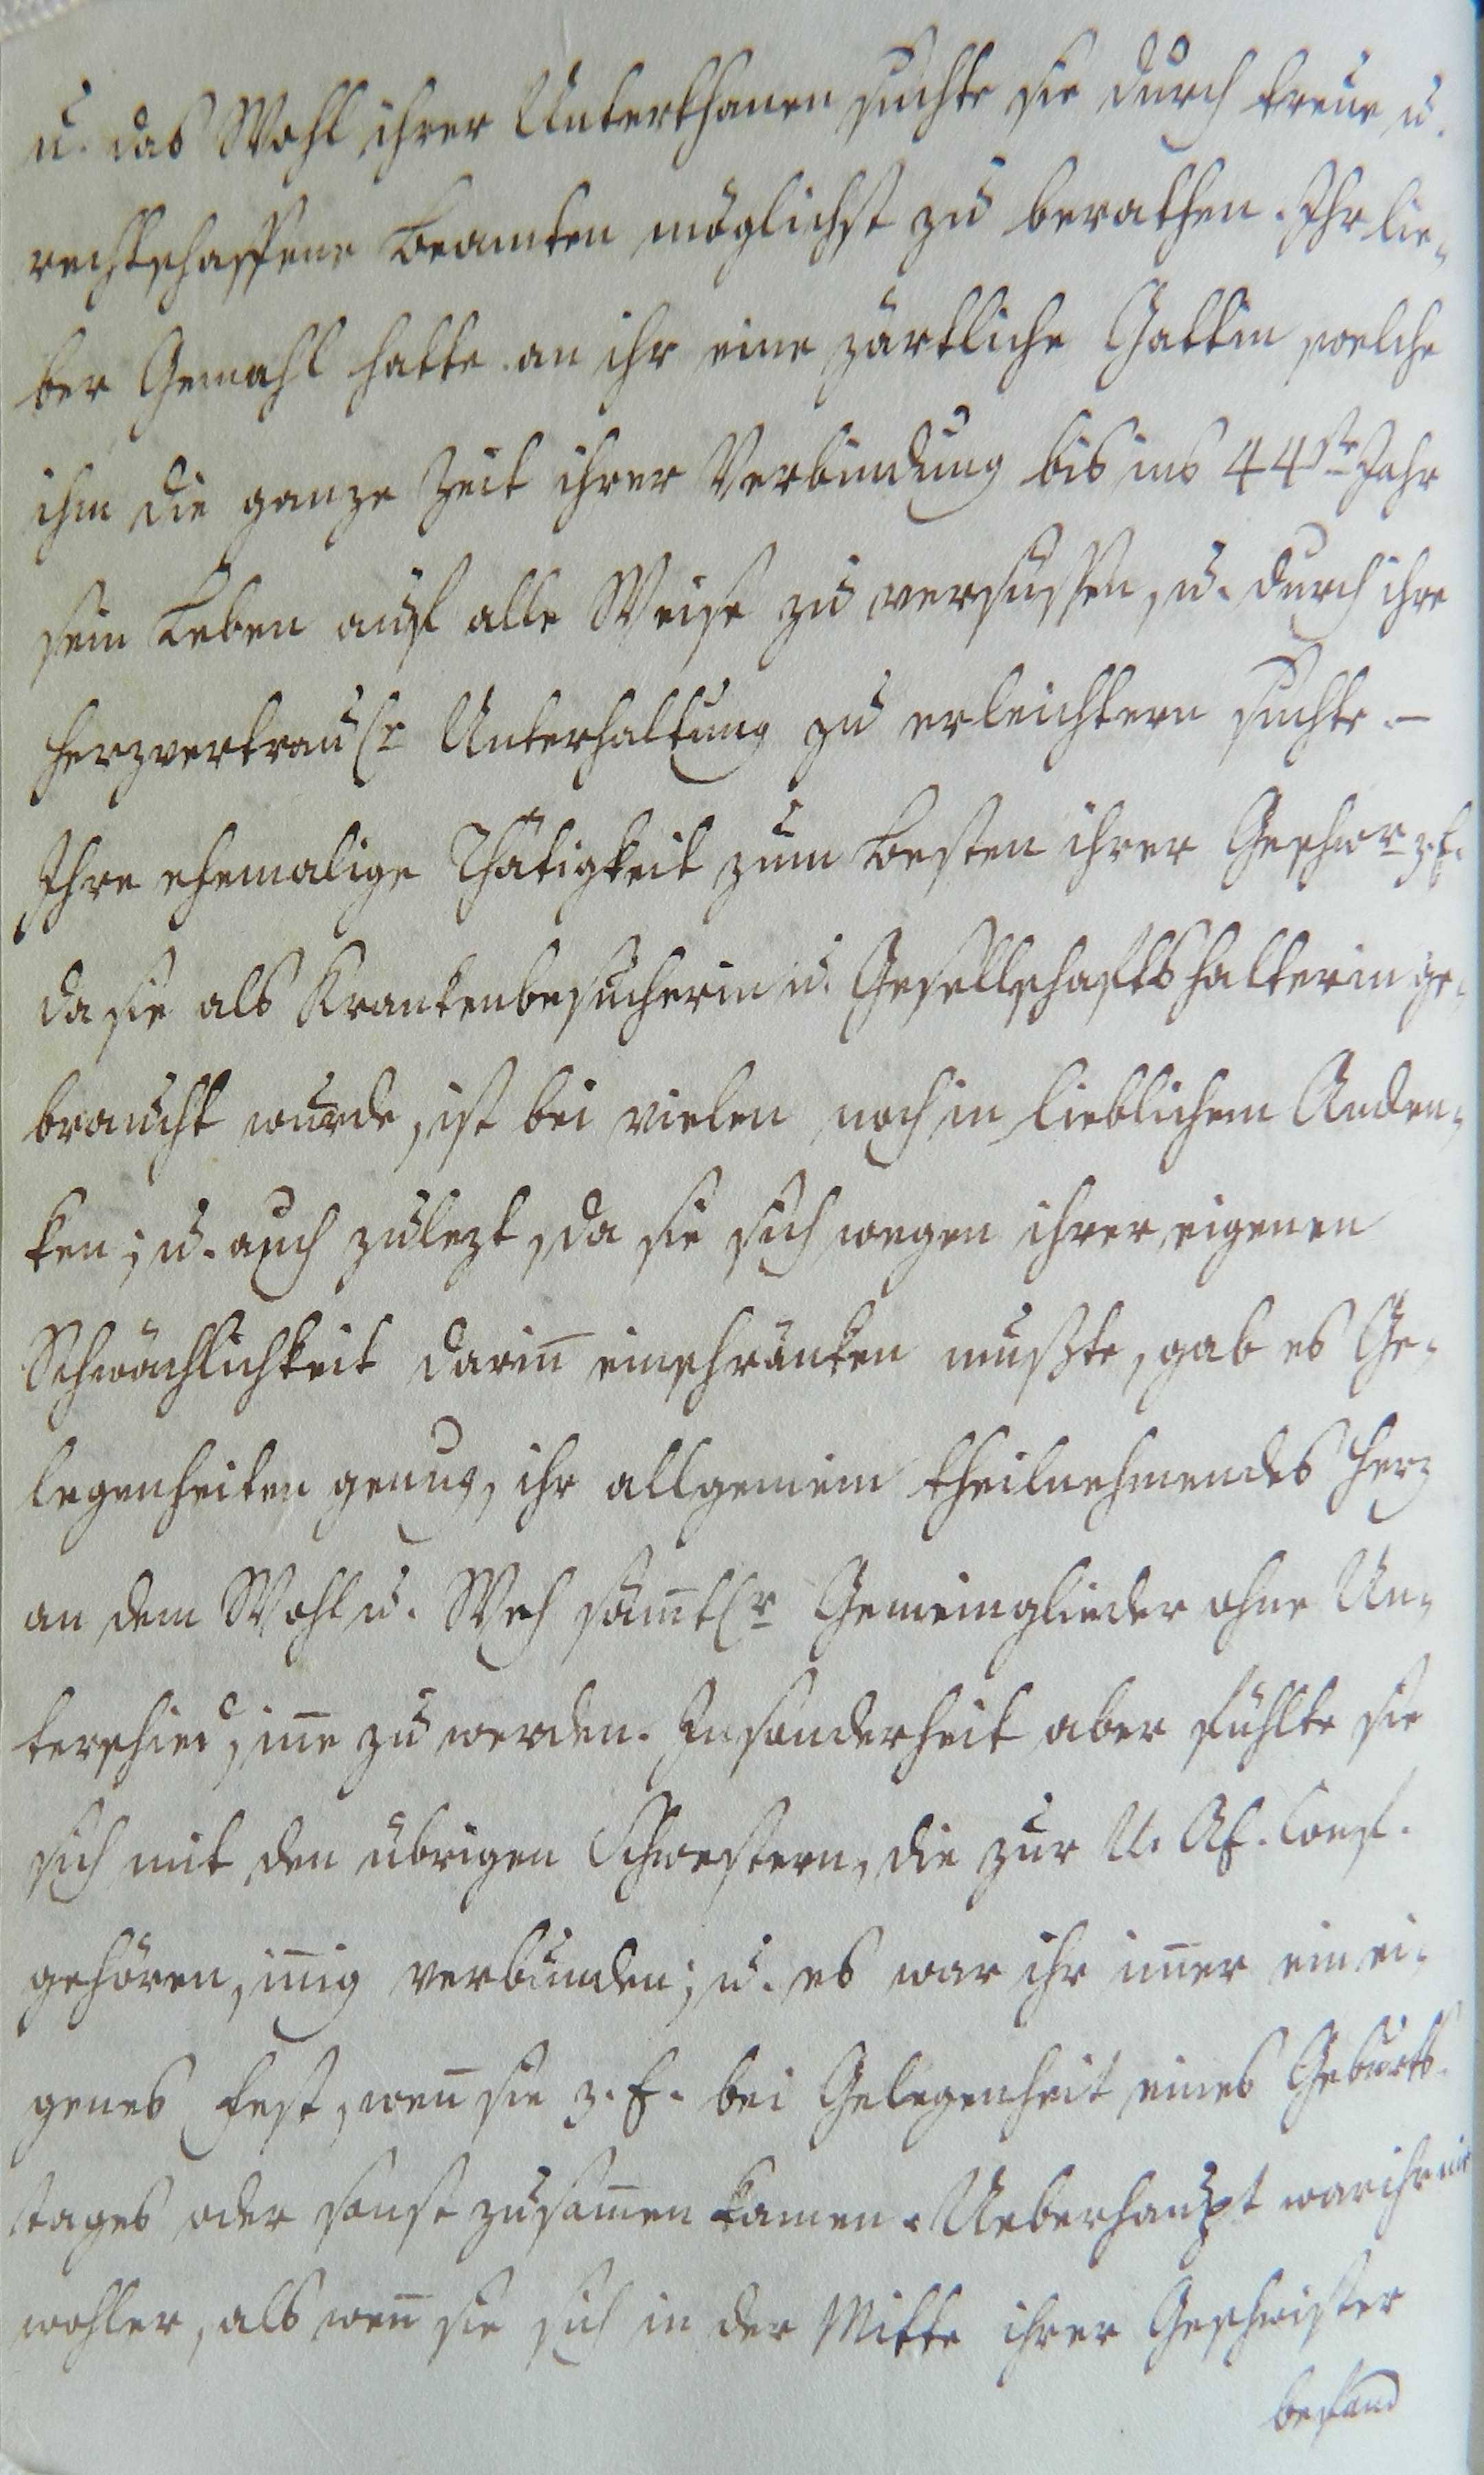 u. das Wohl ihrer Unterthanen suchte sie durch treue u.
rechtschaffene Beamten möglichst zu berathen. Ihr lie-
ber Gemahl hatte an ihr eine zärtliche Gattin, welche
ihm die ganze Zeit ihrer Verbindung bis ins 44ste Jahr
sein Leben auf alle Weise zu versüssen, u. durch ihre
herzvertraul. Unterhaltung zu erleichtern suchte. –
Ihre ehemalige Thätigkeit zum Besten ihrer Geschwr z. E.
da sie als Krankenbesucherin u. Gesellschaftshalterin ge-
braucht wurde, ist bei vielen noch in lieblichem Anden-
ken; u. auch zulezt, da sie sich wegen ihrer eigenen
Schwächlichkeit darin̄ einschränken mußte, gab es Ge-
legenheiten genug, ihr allgemein theilnehmendes Herz
an dem Wohl u. Weh säm̄tlr Gemeinglieder ohne Un-
terschied, in̄e zu werden. Insonderheit aber fühlte sie
sich mit den übrigen Schwestern, die zur U. Ae. Conf.
gehören, in̄ig verbunden; u. es war ihr im̄er ein ei-
genes Fest, wen̄ sie z. E. bei Gelegenheit eines Geburts-
tages oder sonst zusam̄en kamen. Ueberhaupt war ihr nie
wohler, als wen̄ sie sich in der Mitte ihrer Geschwister
befand